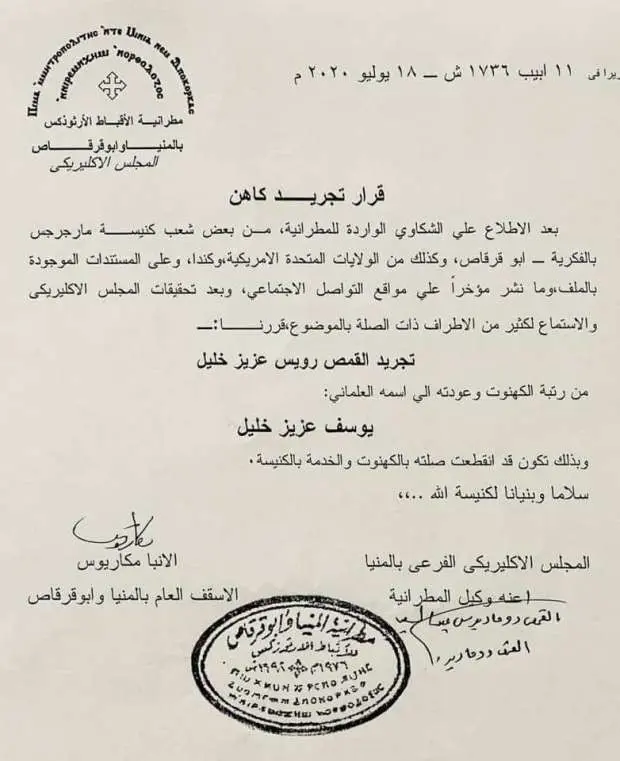 مطرانية الأقباط الأرثوذكس
بالمنيا وابوقرقاص
المجلس الاكليريكى
١١ ابيب ١٧٣٦ ش ــ ١٨ يوليو ٢٠٢٠ م
قرار تجريد كاهن
بعد الاطلاع علي الشكاوي الواردة للمطرانية، من بعض شعب كنيسة مارجرجس
بالفكرية ــ ابو قرقاص، وكذلك من الولايات المتحدة الامريكية،وكندا، وعلى المستندات الموجودة
بالملف،وما نشر مؤخراً علي مواقع التواصل الاجتماعي، وبعد تحقيقات المجلس الاكليريكى
والاستماع لكثير من الاطراف ذات الصلة بالموضوع،قررنا:ــ
تجريد القمص رويس عزيز خليل
من رتبة الكهنوت وعودته الي اسمه العلماني:
يوسف عزيز خليل
وبذلك تكون قد انقطعت صلته بالكهنوت والخدمة بالكنيسة.
سلاما وبنيانا لكنيسة الله ..،،
المجلس الاكليريكى الفرعى بالمنيا
عنه وكيل المطرانية
مكاريوس
الانبا مكاريوس
الاسقف العام بالمنيا وابوقرقاص
مطرانية المنيا وأبوقرقاص
للأقباط الأرثوذكس